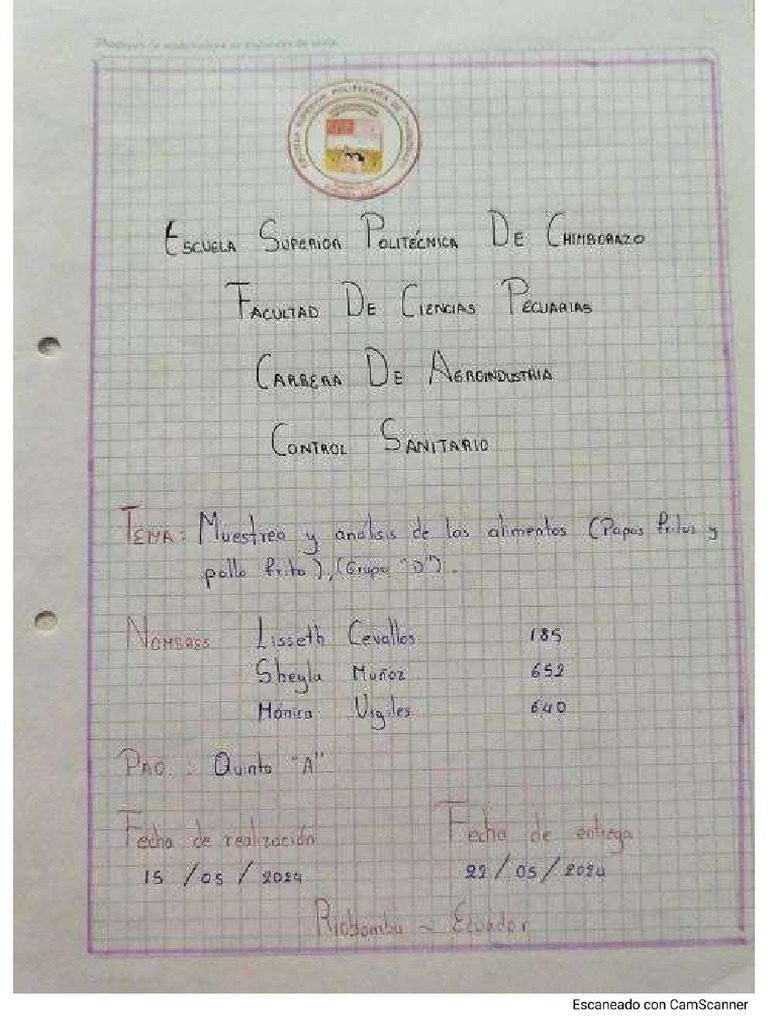 ESCUELA SUPERIOR POLITÉCNICA DE CHIMBORAZO
FACULTAD DE CIENCIAS PECUARIAS
CARRERA DE AGROINDUSTRIA
CONTROL SANITARIO
TEMA: Muestreo y análisis de los alimentos (Papas fritas y
pollo frito), (Grupo "D").
NOMBRES Lisseth Cevallos 185
Sheyla Muñoz 652
Mónica Vigiles 640
PAO. : Quinto "A"
Fecha de realización Fecha de entrega
15 / 05 / 2024 22 / 05 / 2024
Riobamba - Ecuador
Escaneado con CamScanner